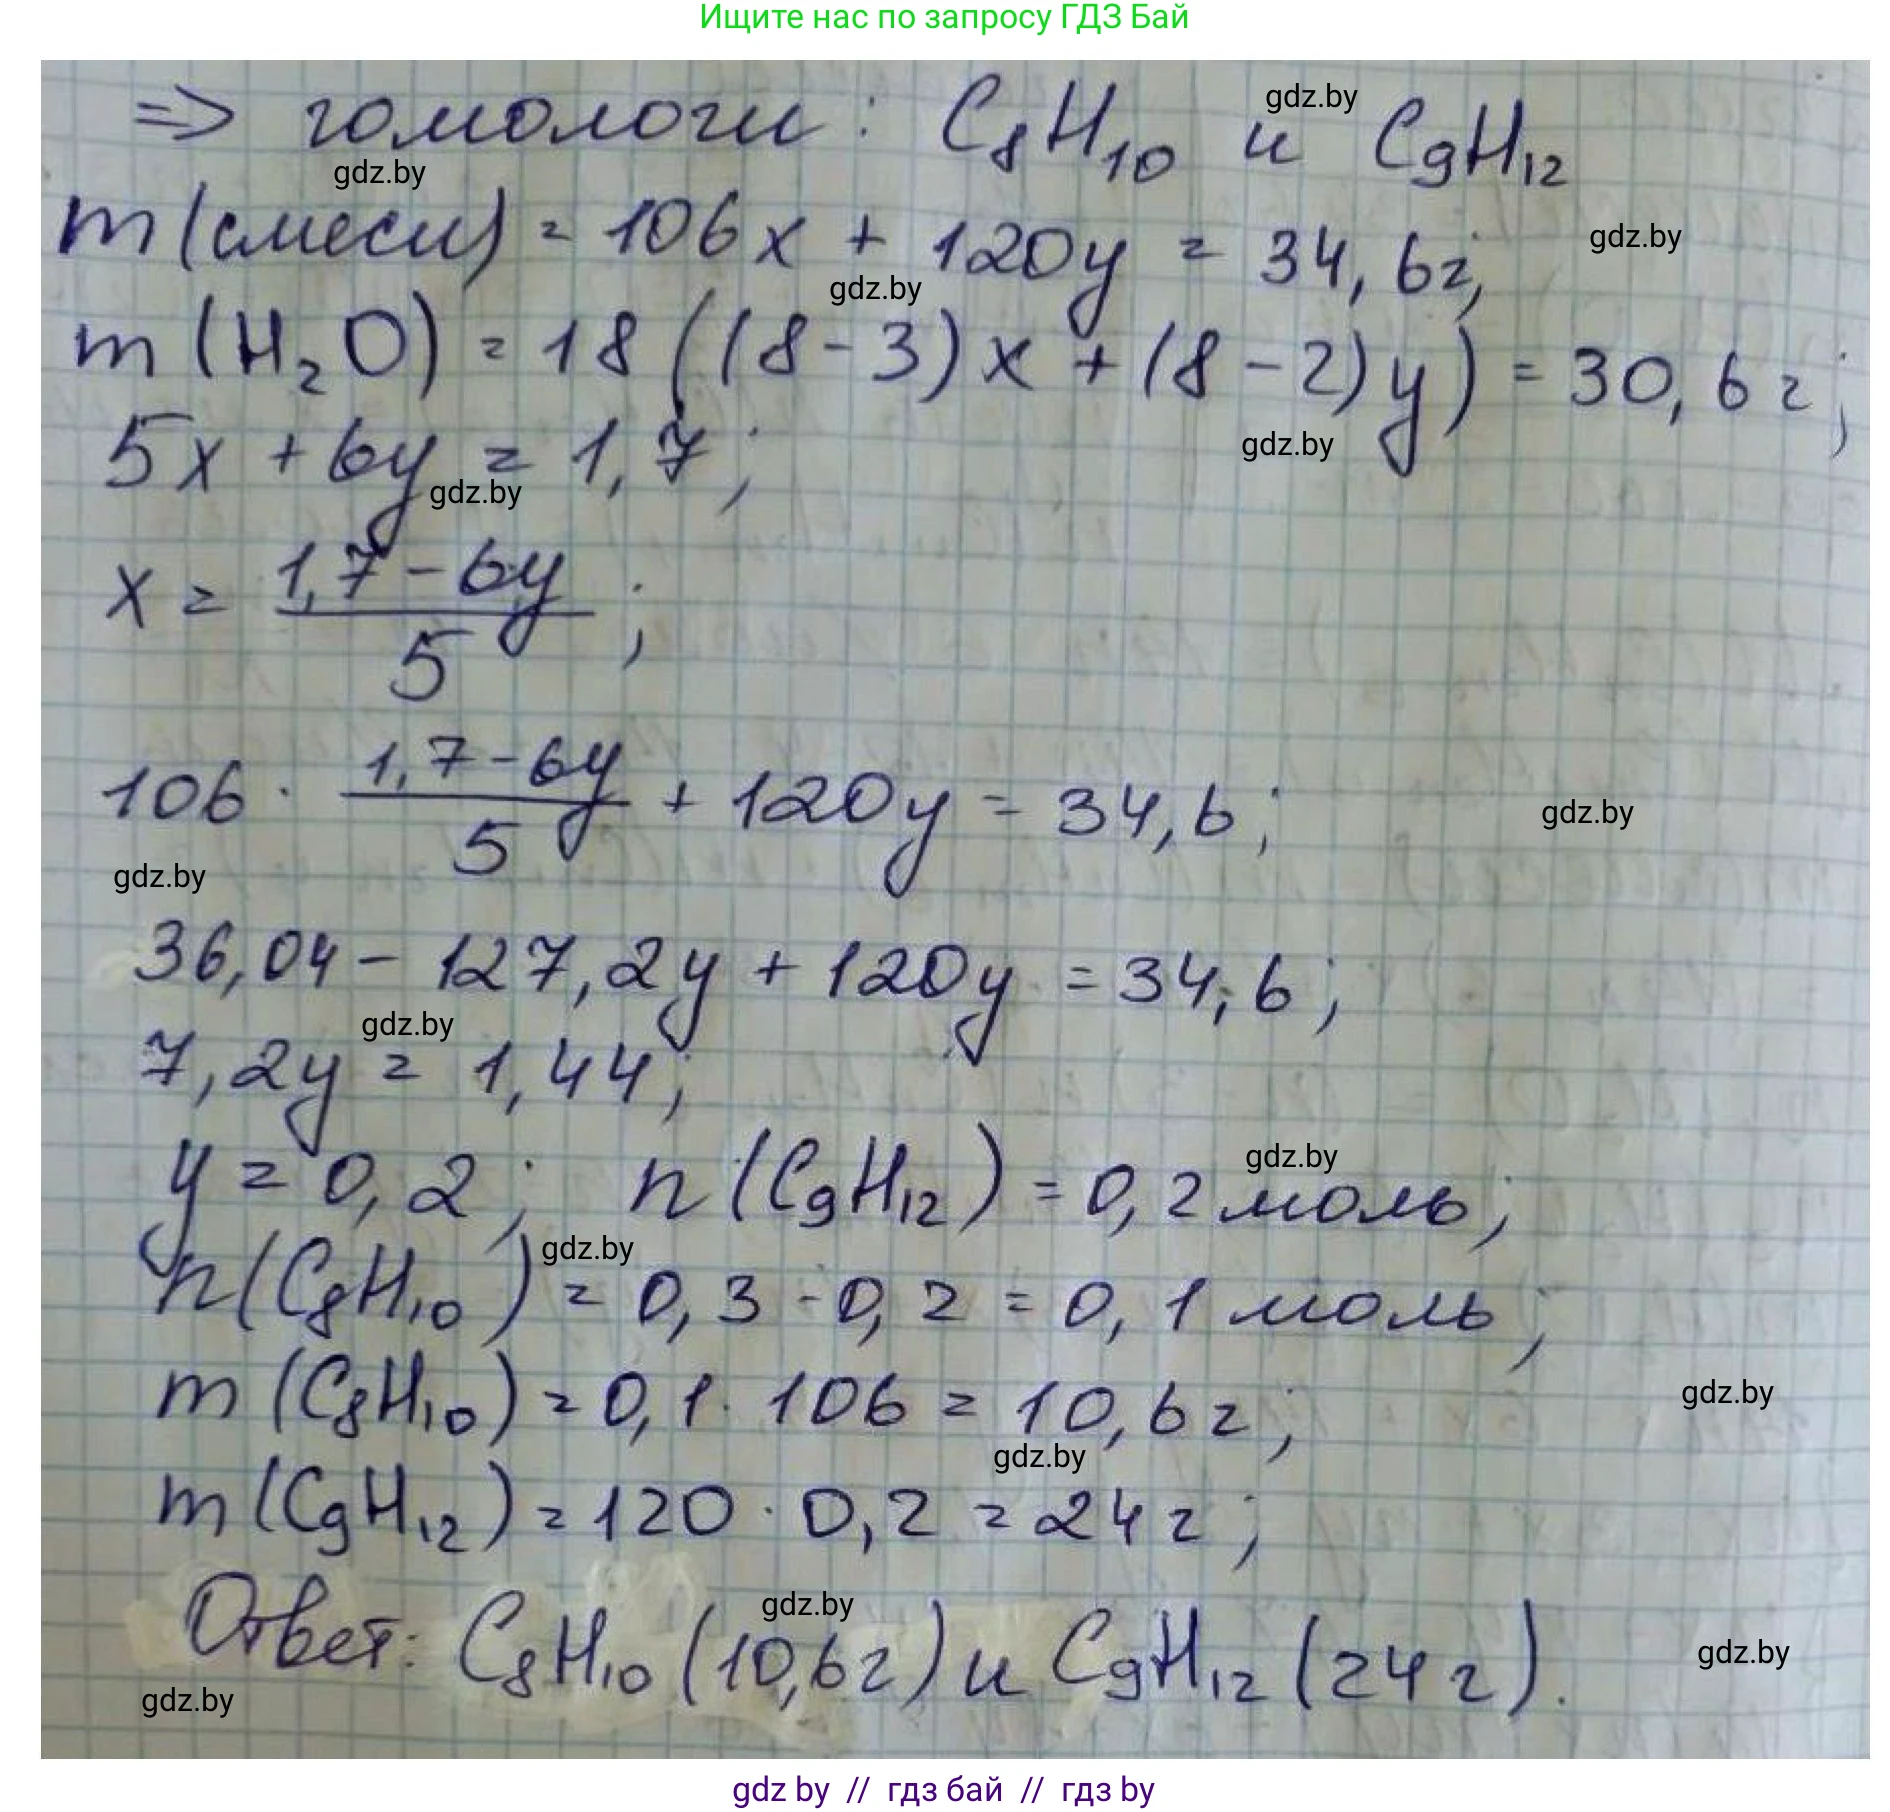 Ищите нас по запросу ГДЗ Бай
=> гомологи: C₈H₁₀ и C₉H₁₂
gdz.by
gdz.by
m(смеси) = 106x + 120y = 34,6г;
gdz.by
gdz.by
m(H₂O) = 18((8-3)x + (8-2)y) = 30,6г;
5x + 6y = 1,7;
gdz.by
gdz.by
x = (1,7-6y)/5;
106 · (1,7-6y)/5 + 120y = 34,6;
gdz.by
gdz.by
36,04 - 127,2y + 120y = 34,6;
gdz.by
7,2y = 1,44;
y = 0,2; n(C₉H₁₂) = 0,2 моль;
gdz.by
gdz.by
n(C₈H₁₀) = 0,3 - 0,2 = 0,1 моль;
m(C₈H₁₀) = 0,1 · 106 = 10,6г;
gdz.by
gdz.by
m(C₉H₁₂) = 120 · 0,2 = 24г;
gdz.by
Ответ: C₈H₁₀ (10,6г) и C₉H₁₂ (24г).
gdz.by
gdz.by
gdz by // гдз бай // гдз by